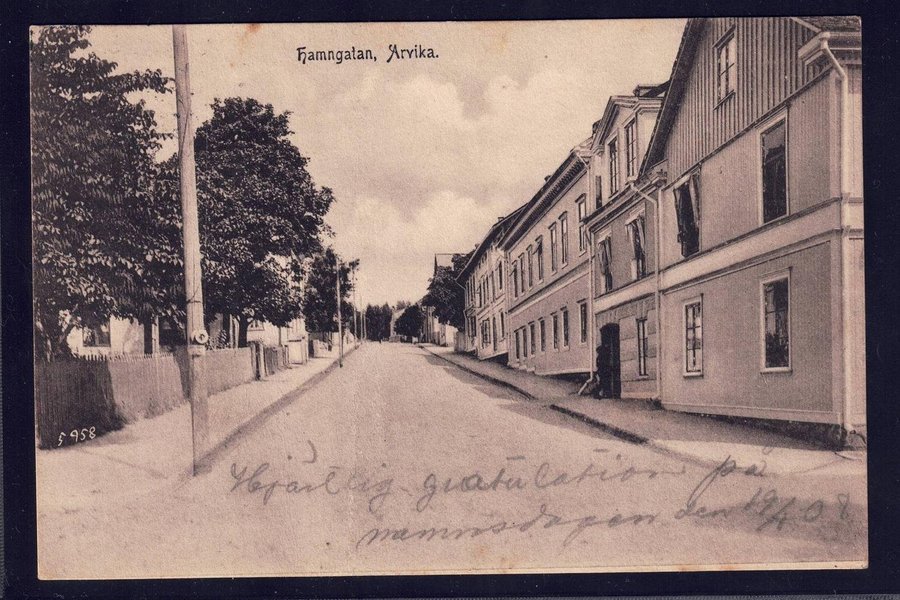 Hamngatan, Arvika.
5958
Hjärtlig gratulation på
namnsdagen den 19/1 08